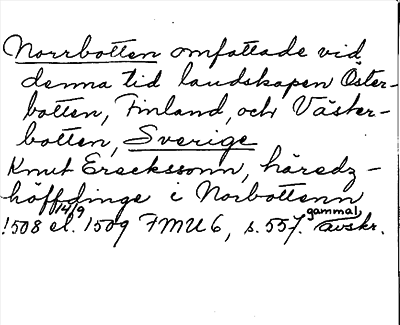 Norrbotten omfattade vid
denna tid landskapen Öster-
botten, Finland, och Väster-
botten, Sverige
Knut Ereckssonn, häredz-
höffdinge i Norbottenn
14/9 gammal
1508 el. 1509 FMU 6, s. 557. avskr.